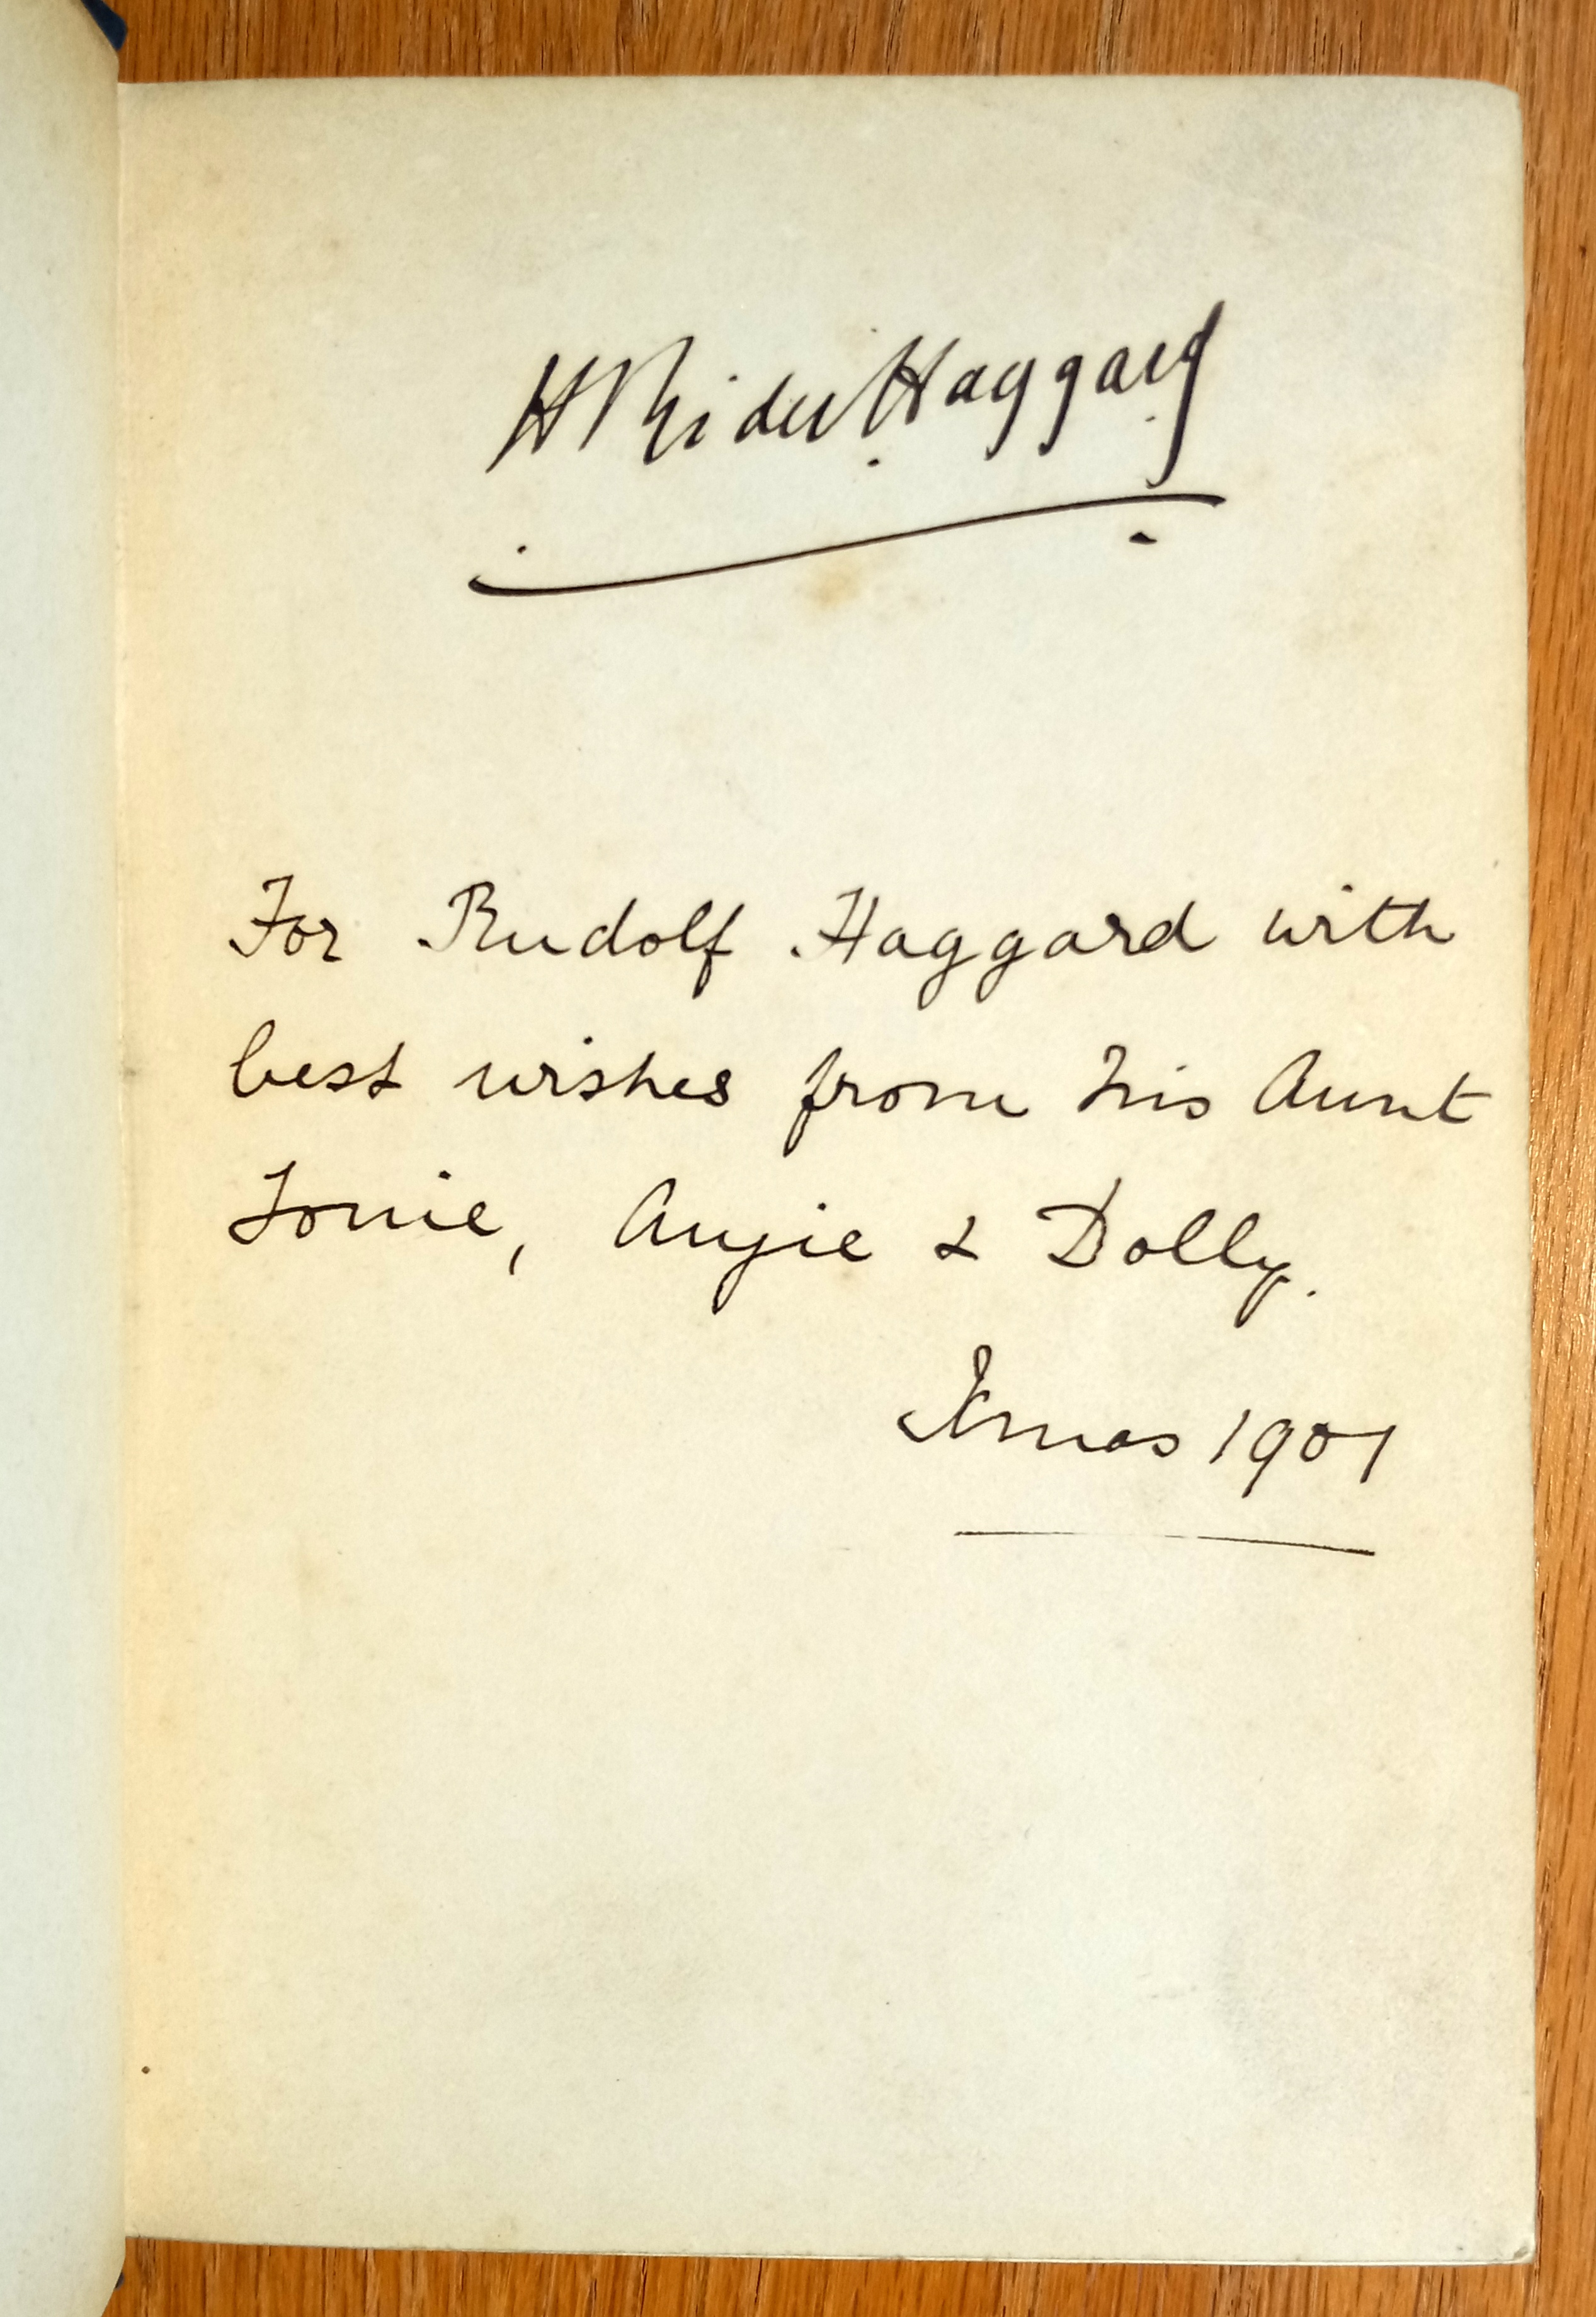 H Rider Haggard
For Rudolf Haggard with
best wishes from his Aunt
Louie, Angie & Dolly.
Xmas 1901